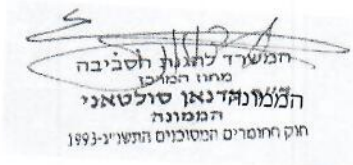 המשרד להגנת הסביבה
מחוז המרכז
עדנאן סולטאני
הממונה
חוק החומרים המסוכנים התשנ״ג-1993